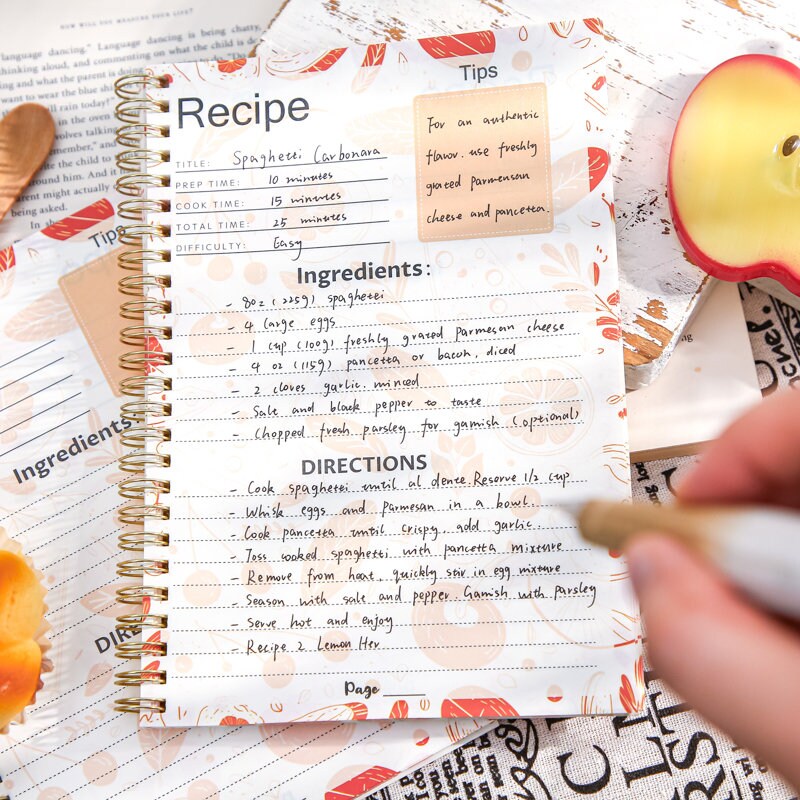 NOW WILL YOU MEASURE YOUR GIFT?
"language dancing." Language dancing is being chatty,
thinking aloud, and commenting on what the child is do
and what the parent is doing
want to wear the blue shir
will rain today?"
in the oven
volves talking
remember," and
the child to
And it
might actually
being asked.
Recipe
TITLE: Spaghetti Carbonara
PREP TIME: 10 minutes
COOK TIME: 15 minutes
TOTAL TIME: 25 minutes
DIFFICULTY: Easy
Tips
For an authentic
flavor. use freshly
grated Parmenson
cheese and pancetta.
Ingredients:
- 8oz (225g) spaghetti
- 4 large eggs
- 1 cup (100g) freshly grated Parmesan cheese
- 4 oz (115g) pancetta or bacon, diced
- 2 cloves garlic. minced
- Salt and black pepper to taste
- Chopped fresh parsley for garnish (optional)
DIRECTIONS
- Cook spaghetti until al dente. Reserve 1/2 cup
- Whisk eggs and Parmesan in a bowl
- Cook pancetta until crispy add garlic
- Toss cooked spaghetti with pancetta mixture
- Remove from heat, quickly stir in egg mixture
- Season with salt and pepper. Garnish with Parsley
- Serve hot and enjoy
- Recipe 2 Lemon Her
Page
Tips
Ingredients:
DIRE